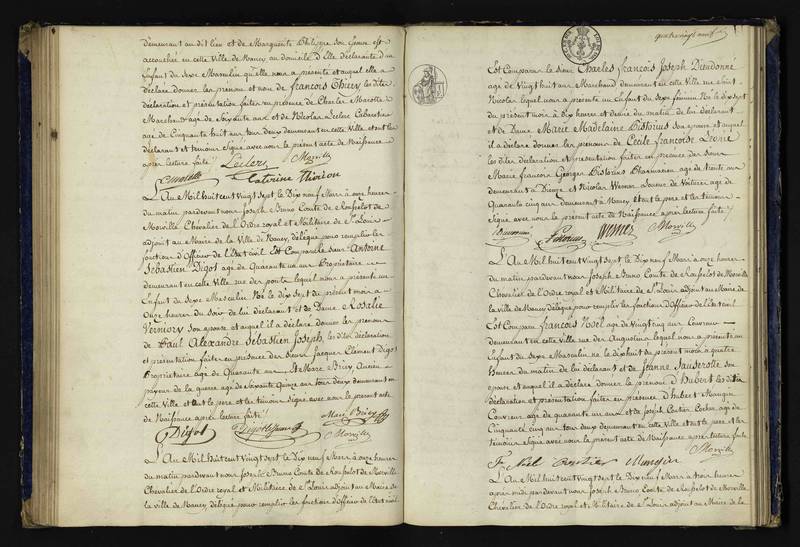 demeurant au dit lieu et de Marguerite Philippe son Epouse est
accouchée en cette Ville de Nancy au domicile d'Elle déclarante d'un
Enfant du Sexe Masculin qu'elle nous a présenté et auquel elle a
déclaré donner les prénom et nom de françois Thiery, les dites
déclaration et présentation faites en présence de Charles Marotte
Marchand agé de Soixante ans et de Nicolas Leclerc Cabaretier
agé de Cinquante huit ans tous deux demeurant en cette Ville et ont les
déclarant et témoins Signé avec nous le présent acte de Naissance
après lecture faite
Leclerc Morville
Caterine Thirion
L'An Mil huit cent Vingt Sept le Dix neuf Mars à onze heures
du matin pardevant nous Joseph Bruno Comte de Rouselot de
Morville Chevalier de l'Ordre royal et Militaire de St Louis
adjoint au Maire de la Ville de Nancy, délégué pour remplir les
fonctions d'Officier de l'Etat civil Est Comparu le Sieur Antoine
Sébastien Digot agé de Quarante un ans Propriétaire
demeurant en cette Ville rue des ponts lequel nous a présenté un
Enfant du Sexe Masculin Né le dix Sept du présent mois à
Onze heures du Soir de lui déclarant et de Dame Rosalie
Vermory Son épouse et auquel il a déclaré donner les prénoms
de Paul Alexandre Sébastien Joseph, les dites déclaration
et présentation faites en présence des Sieurs Jacques Clément Digot
Propriétaire agé de Quarante ans et Marc Bricy Ancien
payeur de la guerre agé de Soixante Quinze ans tous deux demeurant en
cette Ville et ont le pere et les témoins Signé avec nous le présent acte
de Naissance après lecture faite
Digot Digot Marc Bricy
Morville
L'An Mil huit cent Vingt Sept le Dix neuf Mars à onze heures
du matin pardevant nous Joseph Bruno Comte de Rouselot de Morville
Chevalier de l'Ordre royal et Militaire de St Louis adjoint au Maire de
la ville de Nancy délégué pour remplir les fonctions d'Officier de l'Etat civil
quatre vingt neuf
Est Comparu le Sieur Charles françois Joseph Dieudonné
agé de Vingt huit ans Marchand demeurant en cette Ville rue Saint
Nicolas lequel nous a présenté un Enfant du Sexe féminin Né le dix Sept
du présent mois à Dix heures et demie du matin de lui déclarant
et de Dame Marie Madelaine Pistorius Son épouse et auquel
il a déclaré donner les prénoms de Cécile françoise Léonie
les dites déclaration et présentation faites en présence des Sieurs
Marie françois Georges Pistorius Pharmacien agé de trente ans
demeurant à Dieuze et Nicolas Werner Loueur de Voitures agé de
Quarante cinq ans demeurant à Nancy et ont le pere et les témoins
Signé avec nous le présent acte de Naissance après lecture faite
Pistorius Werner Morville
L'An Mil huit cent Vingt Sept le Dix neuf Mars à onze heures
du matin pardevant nous Joseph Bruno Comte de Rouselot de Morville
Chevalier de l'Ordre royal et Militaire de St Louis adjoint au Maire de
la ville de Nancy délégué pour remplir les fonctions d'Officier de l'Etat civil
Est Comparu françois Noel agé de Vingt cinq ans Couvreur
demeurant en cette Ville rue des Augustins lequel nous a présenté un
Enfant du Sexe Masculin né le dix huit du présent mois à quatre
heures du matin de lui déclarant et de Jeanne Sauserotte son
épouse et auquel il a déclaré donner le prénom d'Hubert les dites
déclaration et présentation faites en présence d'hubert Mangin
Couvreur agé de quarante un ans et de Joseph Coutier Cocher agé de
Cinquante cinq ans tous deux demeurant en cette Ville et ont le pere et les
témoins Signé avec nous le présent acte de Naissance après lecture faite
Morville
Mangin
L'An Mil huit cent Vingt Sept le Dix neuf Mars à trois heures
après midi pardevant nous Joseph Bruno Comte de Rouselot de Morville
Chevalier de l'Ordre royal et Militaire de St Louis adjoint au Maire de la